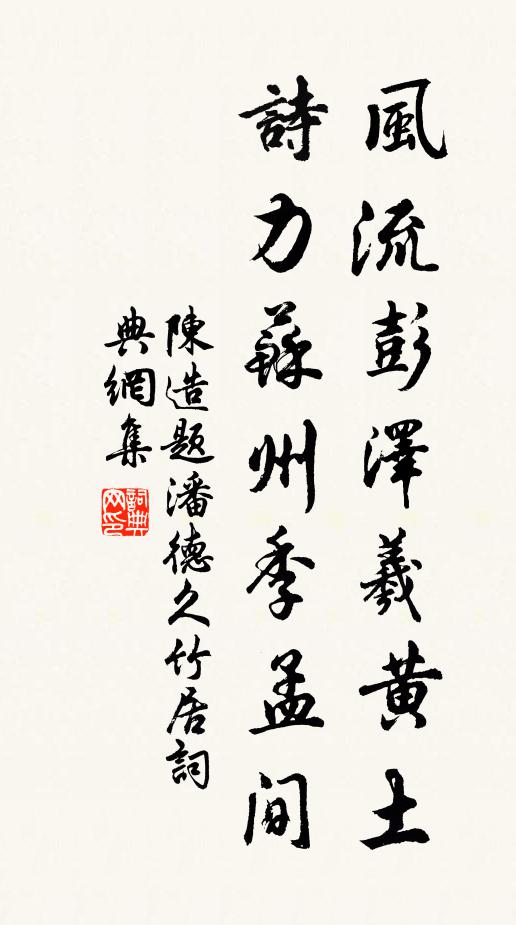 風流彭澤羲黃土
詩力蘇州季孟間
陳造題潘德久竹居詞
典網集
詞典
网印